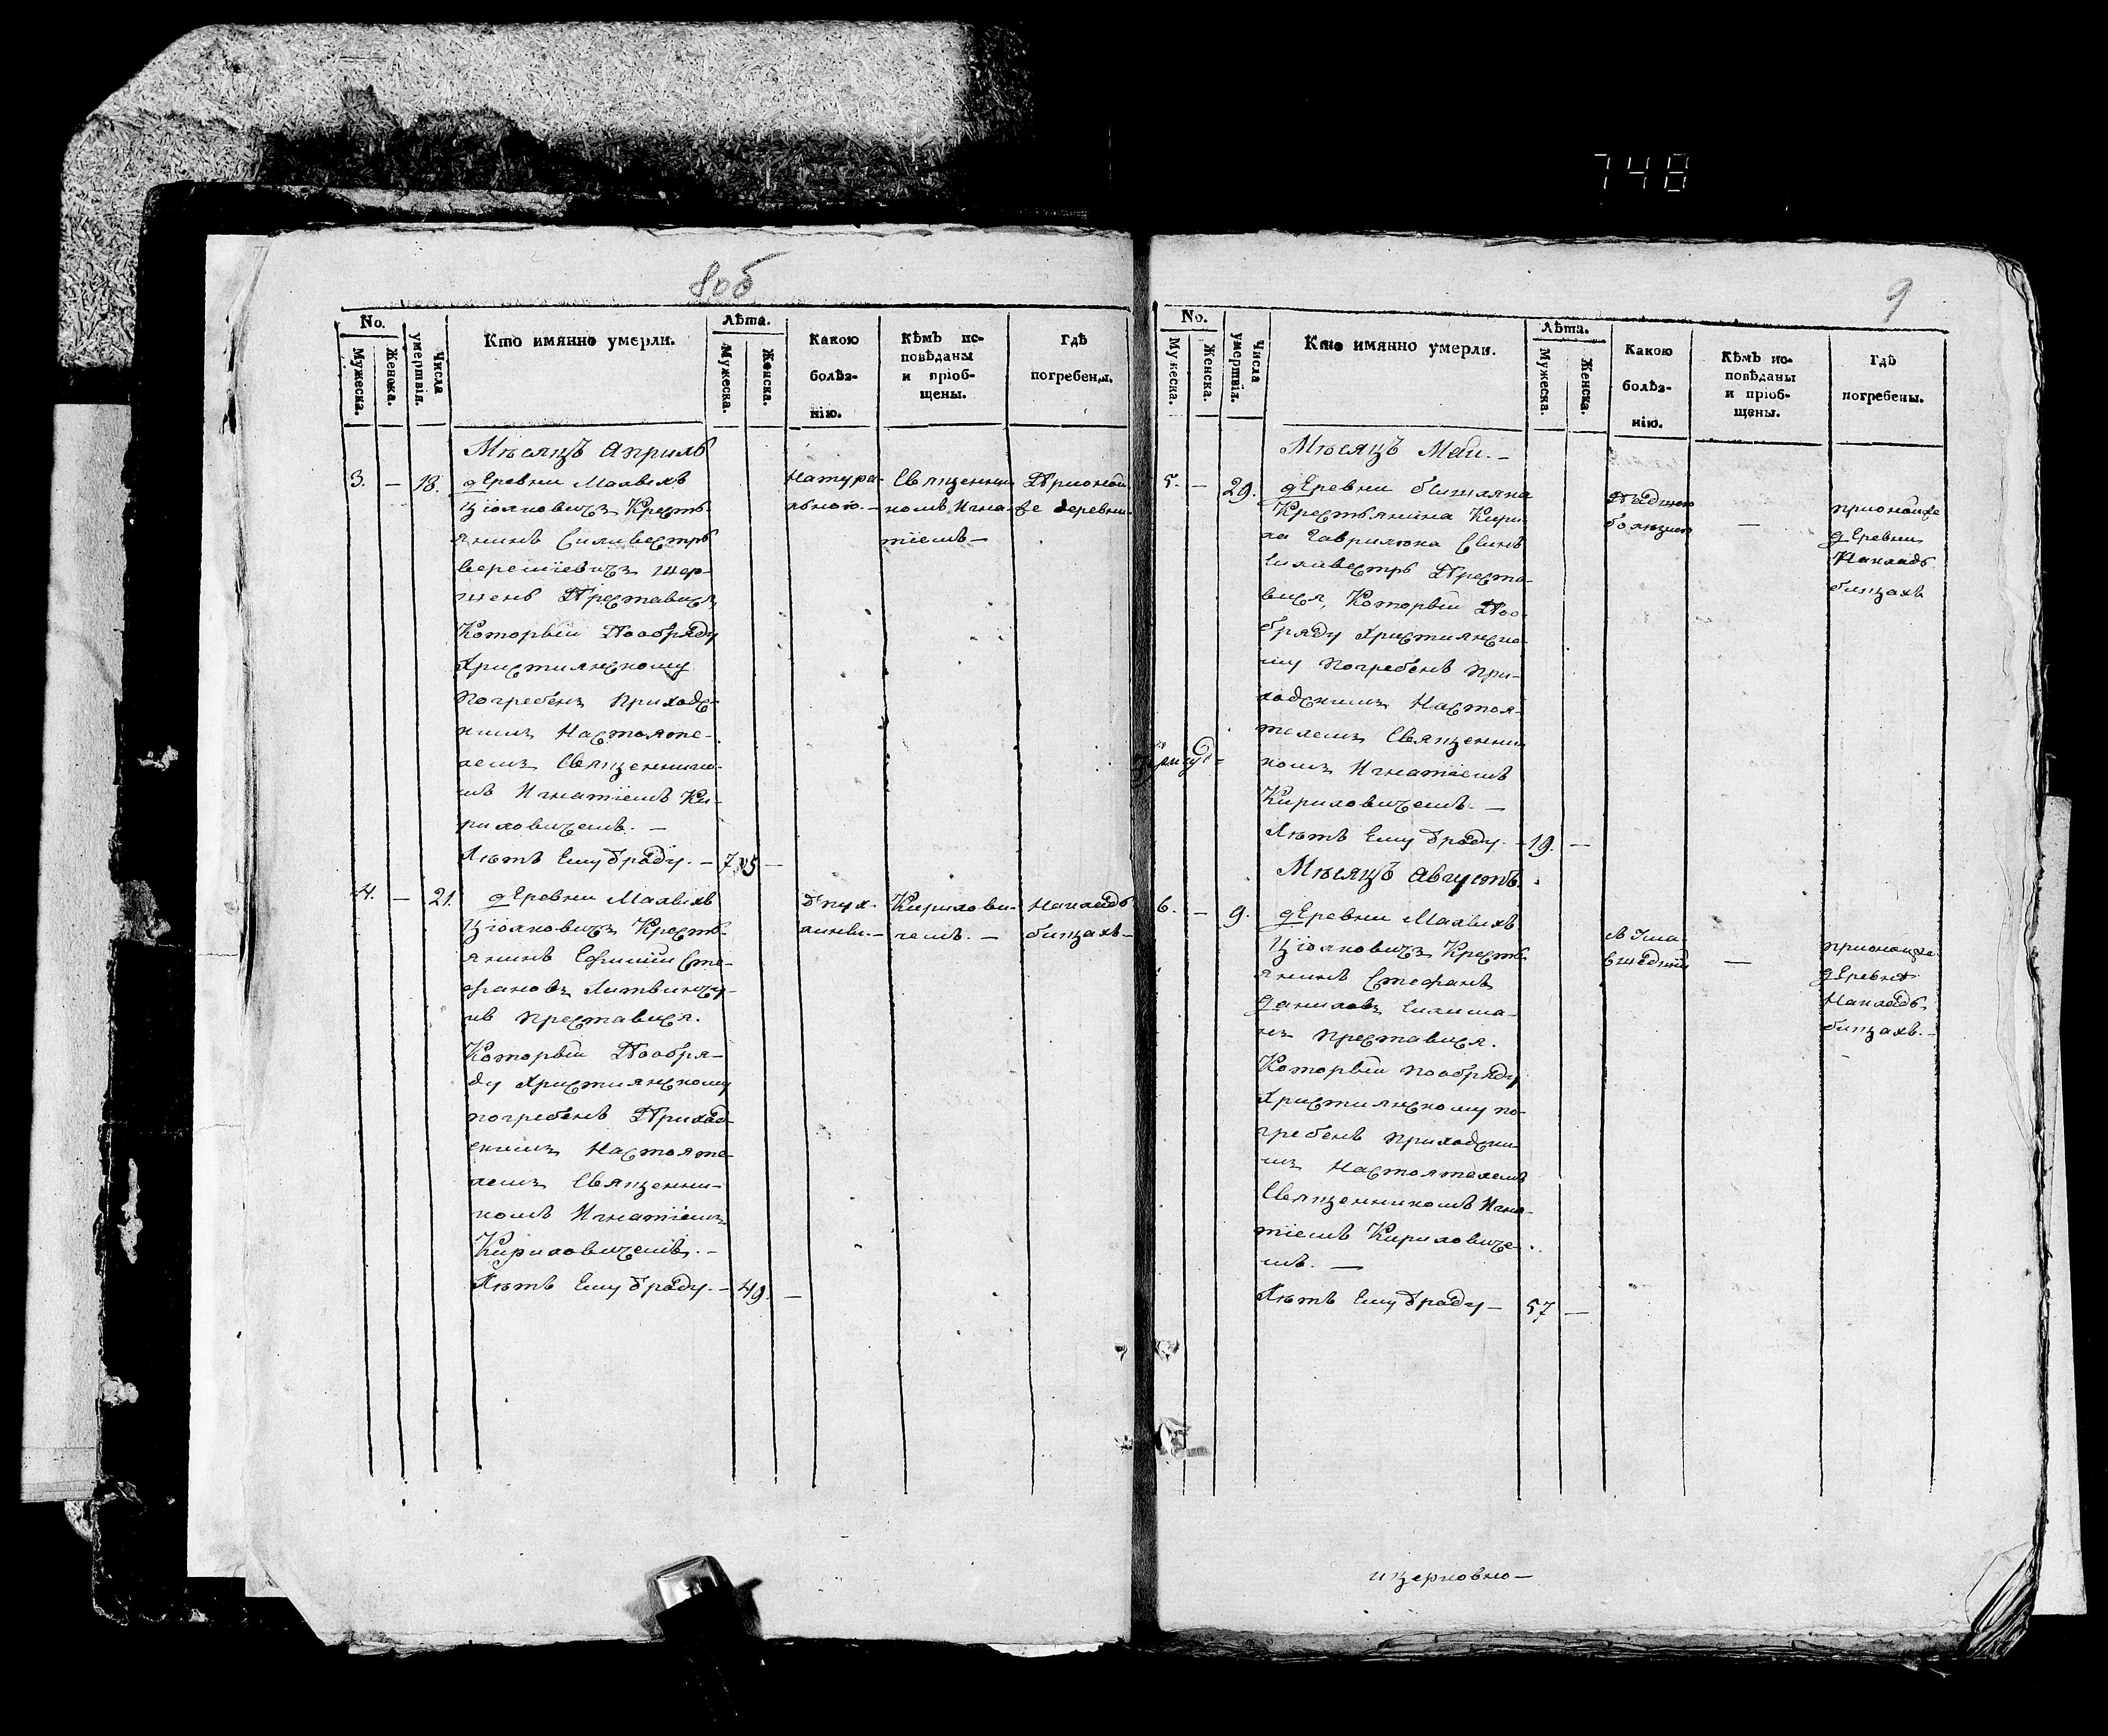 748
8об
No.
Мужеска.
Женска.
Числа умертвія.
Кто имянно умерли.
Лѣта.
Мужеска.
Женска.
Какою
болѣз-
нію.
Кѣмъ ис-
повѣданы
и пріоб-
щены.
Гдѣ
погребены.
Мѣсяцъ Априль
3. — 18. деревни Малыхъ
Ціолковичъ Кресть-
янинъ Силивестръ
шень Преставися,
Который Пообряду
Християнскому
погребенъ Приходс-
кимъ Настояте-
лемъ Священнико-
мъ Игнатіемъ Ки-
риловичемъ. —
Лѣтъ Ему Ѿроду. — 75 —
Натура-
льною. —
Священни-
комъ Игна-
тіемъ —
Приона
же деревни
4. — 21. деревни Малыхъ
Ціолковичъ Кресть-
янинъ Ефимій Сте-
фановъ Литвинчу-
къ преставися.
Который Пообря-
ду Християнскому
погребенъ Приход-
скимъ Настояте-
лемъ Священни-
комъ Игнатіемъ
Кириловичемъ. —
Лѣтъ Ему Ѿроду. — 49. —
Ѿпух-
Кирилови-
чемъ. —
Наклад-
бищахъ —
9
No.
Мужеска.
Женска.
Числа умертвія.
Кто имянно умерли.
Лѣта.
Мужеска.
Женска.
Какою
болѣз-
нію.
Кѣмъ ис-
повѣданы
и пріоб-
щены.
Гдѣ
погребены.
Мѣсяцъ Маи. —
5. — 29. деревни
Крестьянина Кири-
ла Гаврилюка Сынъ
Силивестръ Преста-
вися, Который Поо-
бряду Християнско-
му погребенъ При-
ходскимъ Настоя-
телемъ Священни-
комъ Игнатіемъ
Кириловичемъ. —
Лѣтъ Ему Ѿроду. — 19. —
Падшею
болѣзнею
—
прионойже
деревни
Накладъ-
бищахъ
Мѣсяцъ Августъ.
6. — 9. деревни Малыхъ
Ціолковичъ Кресть-
янинъ Стефанъ
Даниловъ
преставися.
Который пообряду
Християнскому по-
гребенъ приходски-
мъ Настоятелемъ
Священникомъ Игна-
тіемъ Кириловиче-
мъ. —
Лѣтъ Ему Ѿроду — 57 —
—
прионойже
деревнѣ
Накладъ-
бищахъ. —
ицерковно —